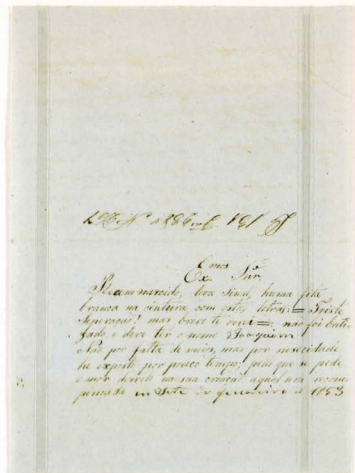 Emos
Ex Snr
Recemnascido, leva sinal, huma fita
branca na cintura com estas letras: = Triste
Separação! mas breve te verei =, não foi bati-
zado e deve ter o nome Joaquim
Não por falta de meios, mas por necessidade
he exposto por pouco tempo, pelo que se pede
o maior desvelo na sua creação a qual será recom-
pençada em Sete de fevereiro de 1853